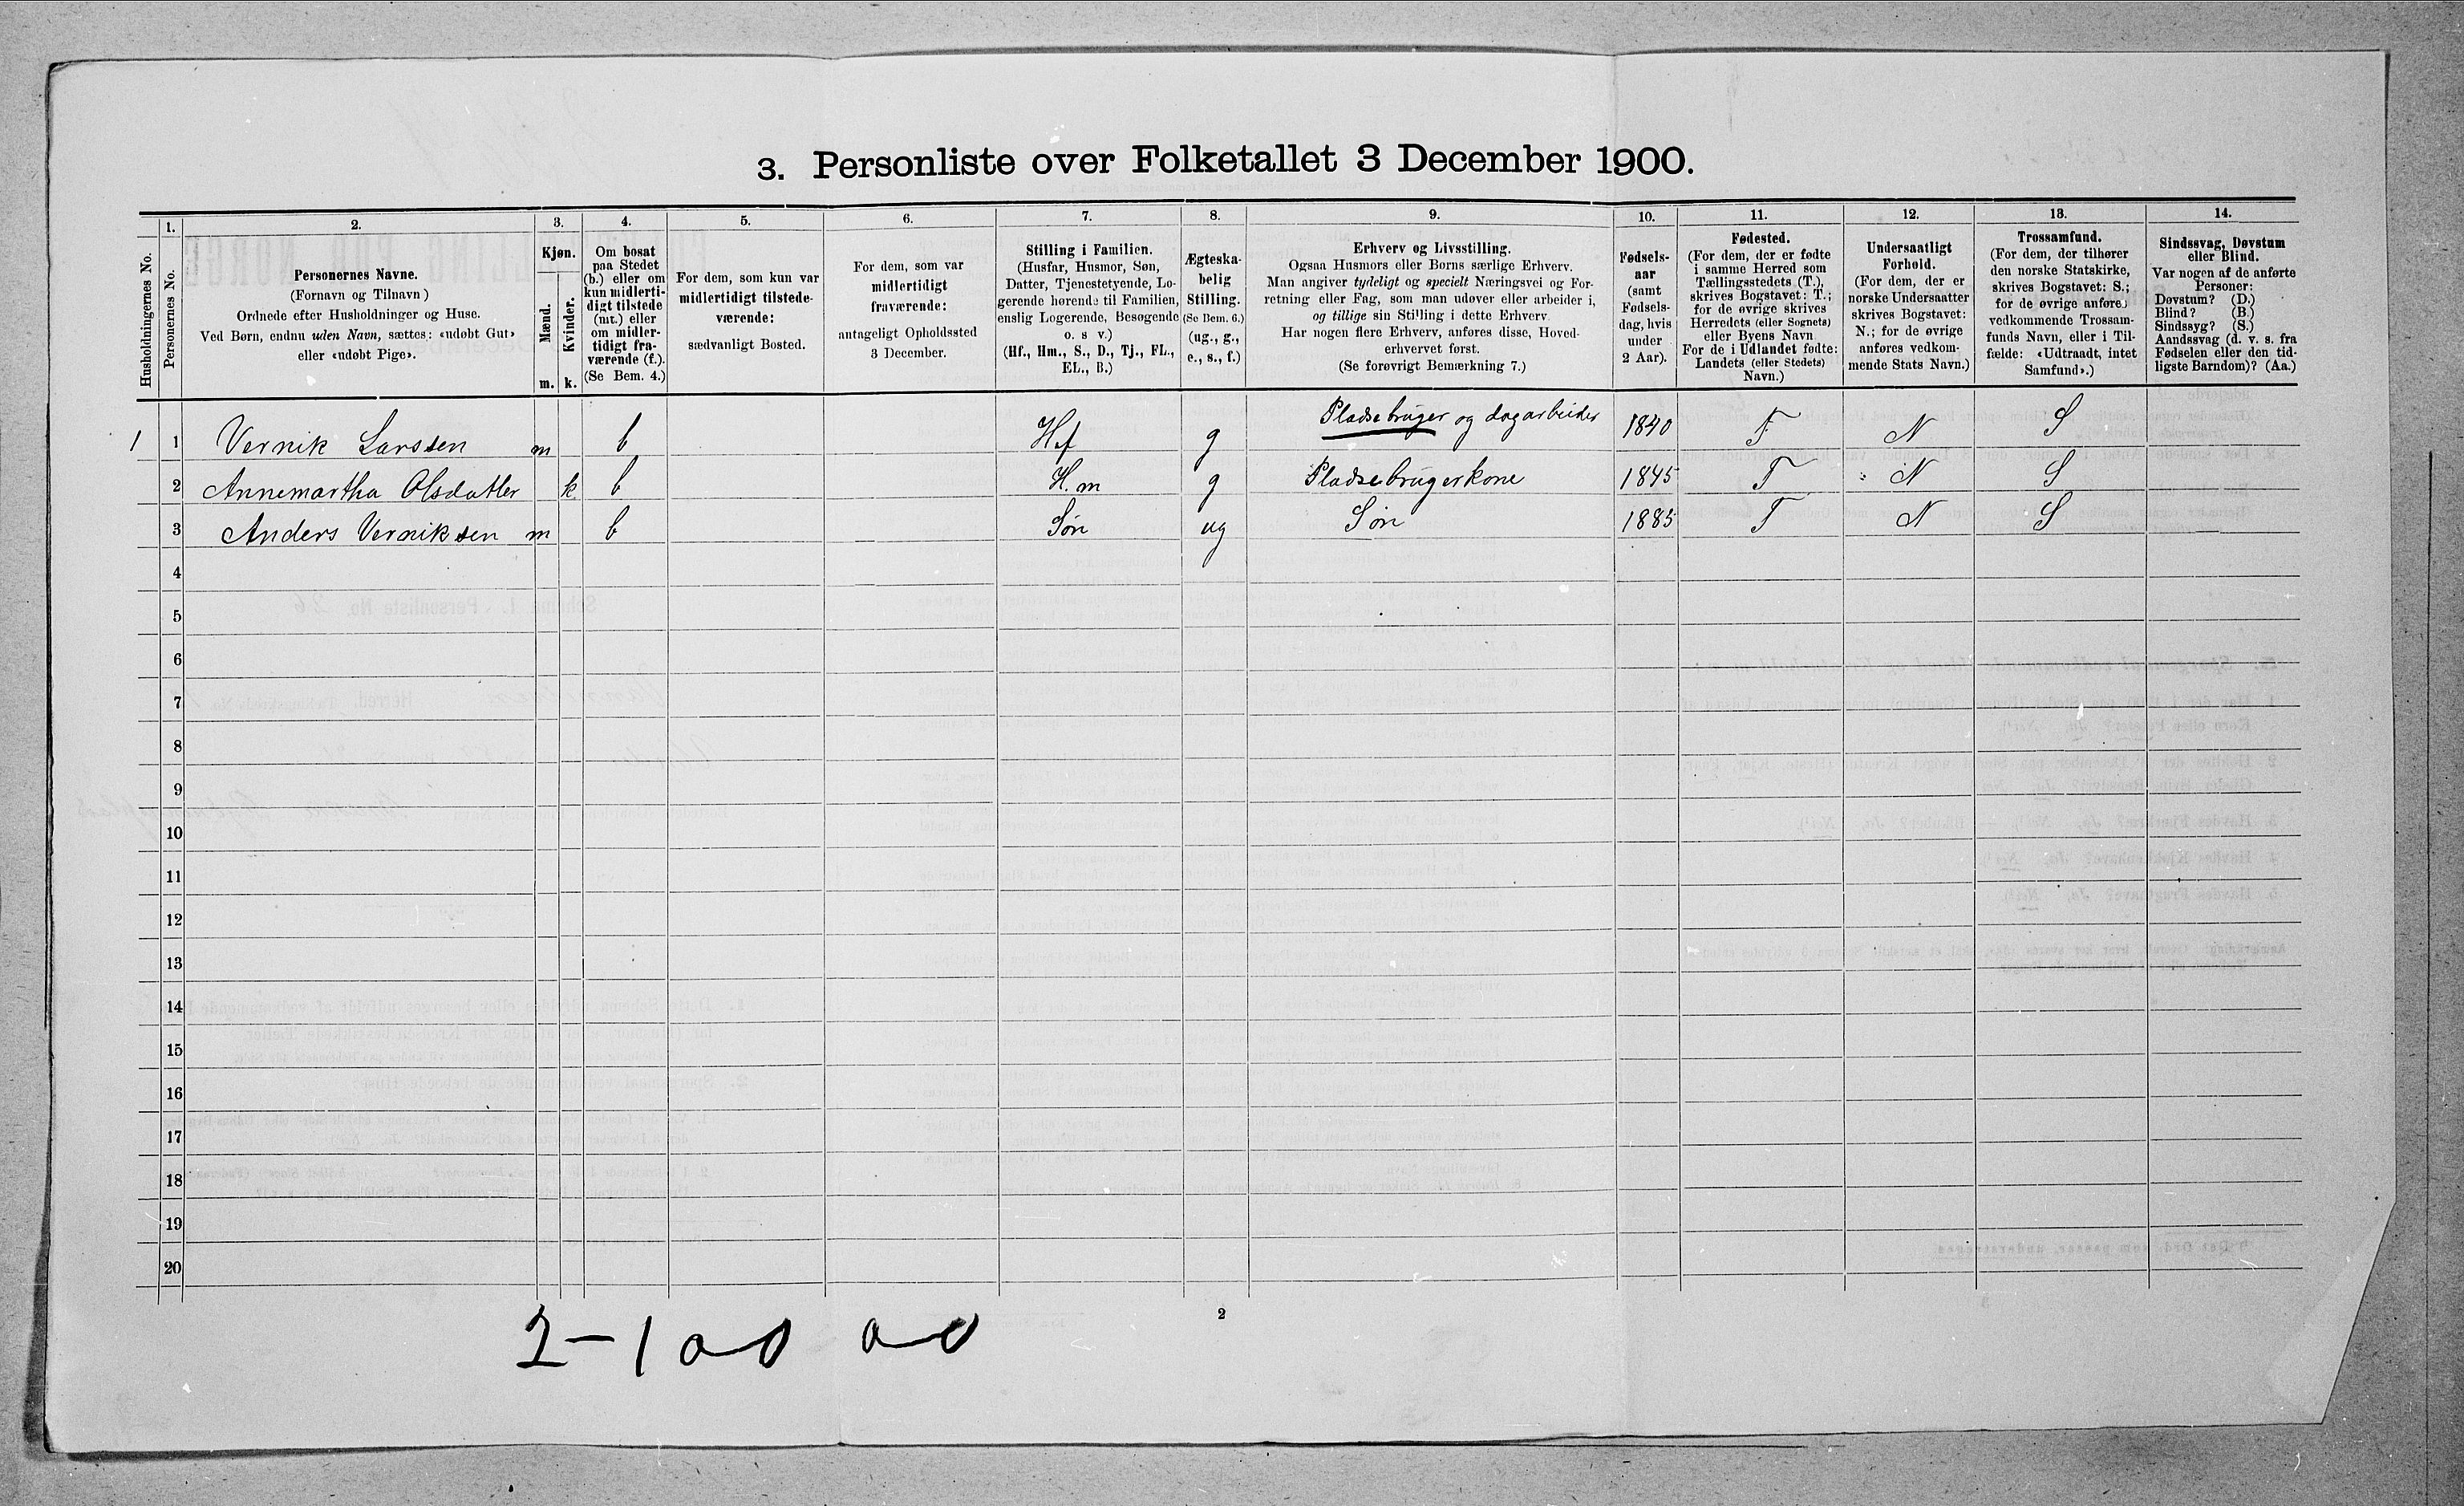 3. Personliste over Folketallet 3 December 1900.
Husholdningernes No.
1.
Personernes No.
2.
Personernes Navne.
(Fornavn og Tilnavn)
Ordnede efter Husholdninger og Huse.
Ved Børn, endnu uden Navn, sættes: «udøbt Gut»
eller «udøbt Pige».
3.
Kjøn.
Mænd.
Kvinder.
m. k.
4.
Om bosat
paa Stedet
(b.) eller om
kun midlerti-
digt tilstede
(mt.) eller
om midler-
tidigt fra-
værende (f.).
(Se Bem. 4.)
5.
For dem, som kun var
midlertidigt tilstede-
værende:
sædvanligt Bosted.
6.
For dem, som var
midlertidigt
fraværende:
antageligt Opholdssted
3 December.
7.
Stilling i Familien.
(Husfar, Husmor, Søn,
Datter, Tjenestetyende, Lo-
gerende hørende til Familien,
enslig Logerende, Besøgende
o. s v.)
(Hf., Hm., S., D., Tj., FL.,
EL., B.)
8.
Ægteska-
belig
Stilling.
(Se Bem. 6.)
(ug., g.,
e., s., f.)
9.
Erhverv og Livsstilling.
Ogsaa Husmors eller Børns særlige Erhverv.
Man angiver tydeligt og specielt Næringsvei og For-
retning eller Fag, som man udøver eller arbeider i,
og tillige sin Stilling i dette Erhverv.
Har nogen flere Erhverv, anføres disse, Hoved-
erhvervet først.
(Se forøvrigt Bemærkning 7.)
10.
Fødsels-
aar
(samt
Fødsels-
dag, hvis
under
2 Aar).
11.
Fødested.
(For dem, der er fødte
i samme Herred som
Tællingsstedets (T.),
skrives Bogstavet: T.;
for de øvrige skrives
Herredets (eller Sognets)
eller Byens Navn
For de i Udlandet fødte:
Landets (eller Stedets)
Navn.)
12.
Undersaatligt
Forhold.
(For dem, der er
norske Undersaatter
skrives Bogstavet:
N.; for de øvrige
anføres vedkom-
mende Stats Navn.)
13.
Trossamfund.
(For dem, der tilhører
den norske Statskirke,
skrives Bogstavet: S.;
for de øvrige anføres
vedkommende Trossam-
funds Navn, eller i Til-
fælde: «Udtraadt, intet
Samfund».)
14.
Sindssvag, Døvstum
eller Blind.
Var nogen af de anførte
Personer:
Døvstum? (D.)
Blind? (B.)
Sindssyg? (S.)
Aandssvag (d. v. s. fra
Fødselen eller den tid-
ligste Barndom)? (Aa.)
1 1 Vernik Larssen m b Hf g Pladsebruger og dagarbeider 1840 T N S
2 Annemartha Olsdatter k b H.m g Pladsebrugerkone 1845 T N S
3 Anders Verniksen m b Søn ug Søn 1885 T N S
4
5
6
7
8
9
10
11
12
13
14
15
16
17
18
19
20
2
2-1 0-0 0-0